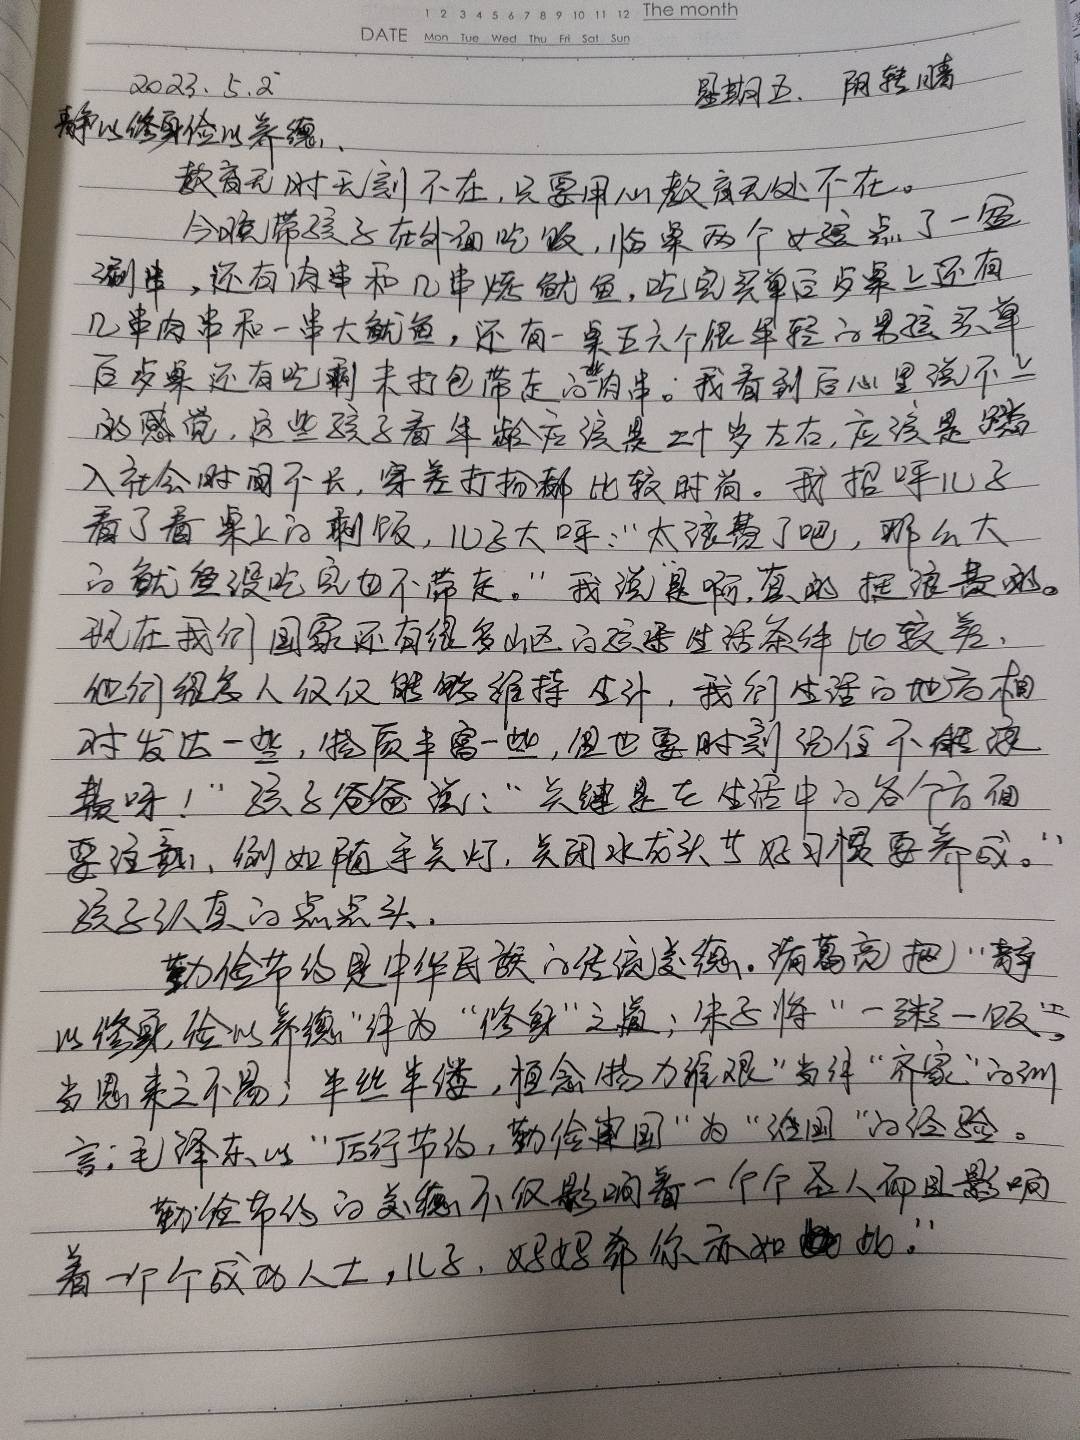 1 2 3 4 5 6 7 8 9 10 11 12 The month
DATE Mon Tue Wed Thu Fri Sat Sun
2023.5.2 星期五. 阴转晴
静以修身俭以养德.
教育无时无刻不在,只要用心教育无处不在。
今晚带孩子在外面吃饭,临桌两个女孩点了一盆
涮串,还有肉串和几串烧鱿鱼,吃完买单后岁桌上还有
几串肉串和一串大鱿鱼,还有一桌五六个很年轻的男孩买单
后岁桌还有吃剩未打包带走的些肉串。我看到后心里说不上
的感觉,这些孩子看年龄应该是二十岁左右,应该是踏
入社会时间不长,穿着打扮都比较时尚。我招呼儿子
看了看桌上的剩饭,儿子大呼:“太浪费了吧,那么大
的鱿鱼没吃完也不带走。”我说是啊,真的挺浪费的。
现在我们国家还有很多山区的孩子生活条件比较差,
他们很多人仅仅能够维持生计,我们生活的地方相
对发达一些,物质丰富一些,但也要时刻记住不能浪
费呀!”孩子爸爸说:“关键是在生活中的各个方面
要注意,例如随手关灯,关闭水龙头等好习惯要养成。”
孩子认真的点点头.
勤俭节约是中华民族的传统美德。诸葛亮把“静
以修身,俭以养德”作为“修身”之道;朱子将“一粥一饭,
当思来之不易;半丝半缕,恒念物力维艰”当作“齐家”的训
言;毛泽东以“厉行节约,勤俭建国”为“治国”的经验。
勤俭节约的美德不仅影响着一个个圣人而且影响
着一个个成功人士,儿子,妈妈希你亦如此。”